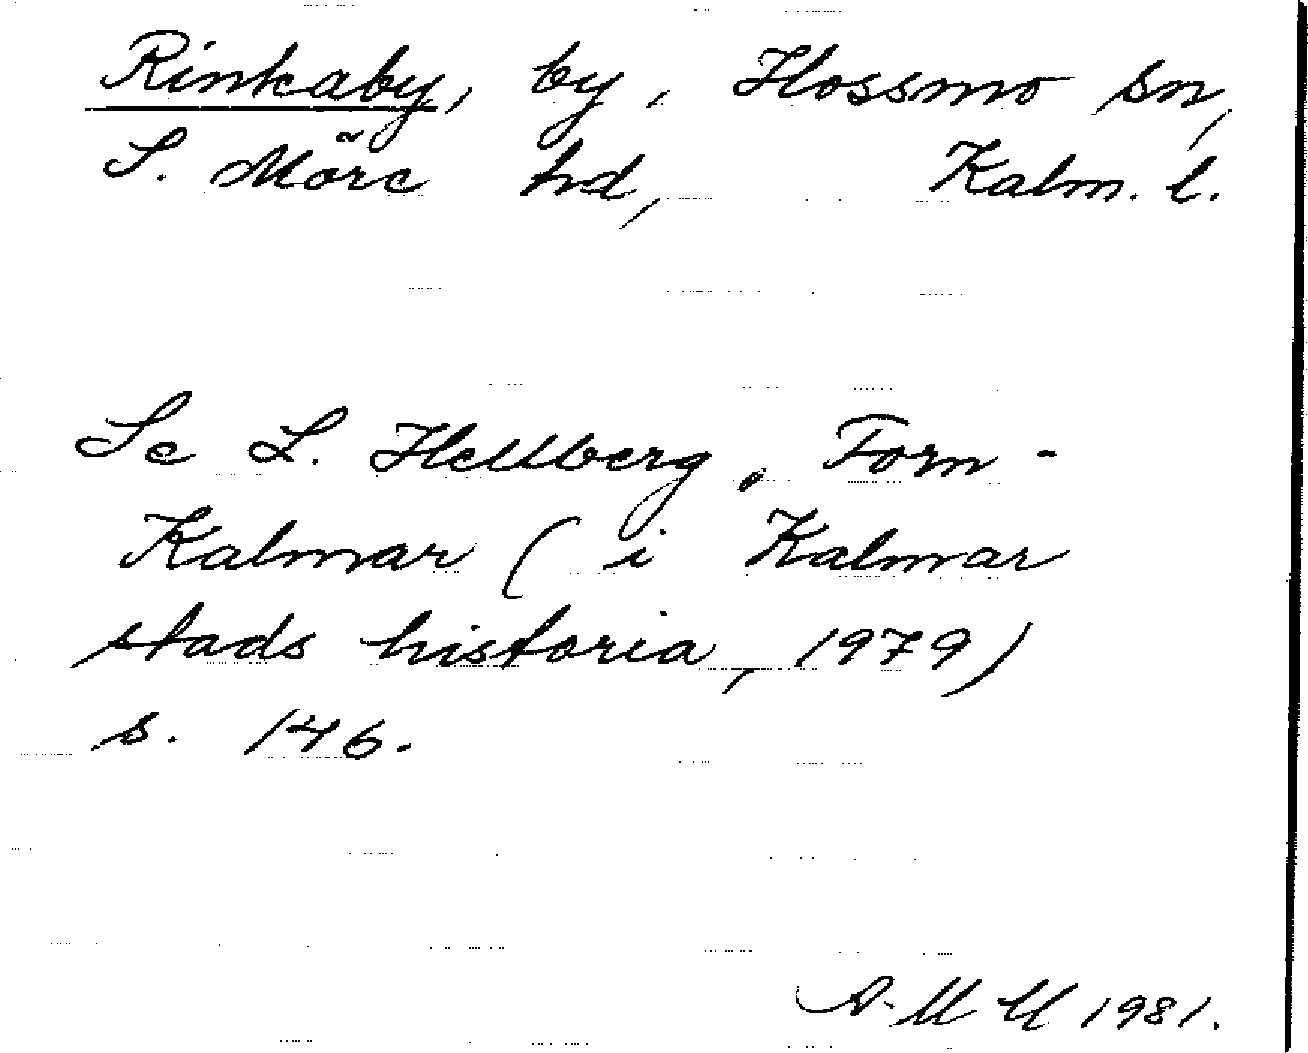 Rinkaby, by, Hossmo sn,
S. Möre hd, Kalm. l.
Se L. Hellberg, Forn-
Kalmar (i Kalmar
stads historia, 1979)
s. 146.
1981.